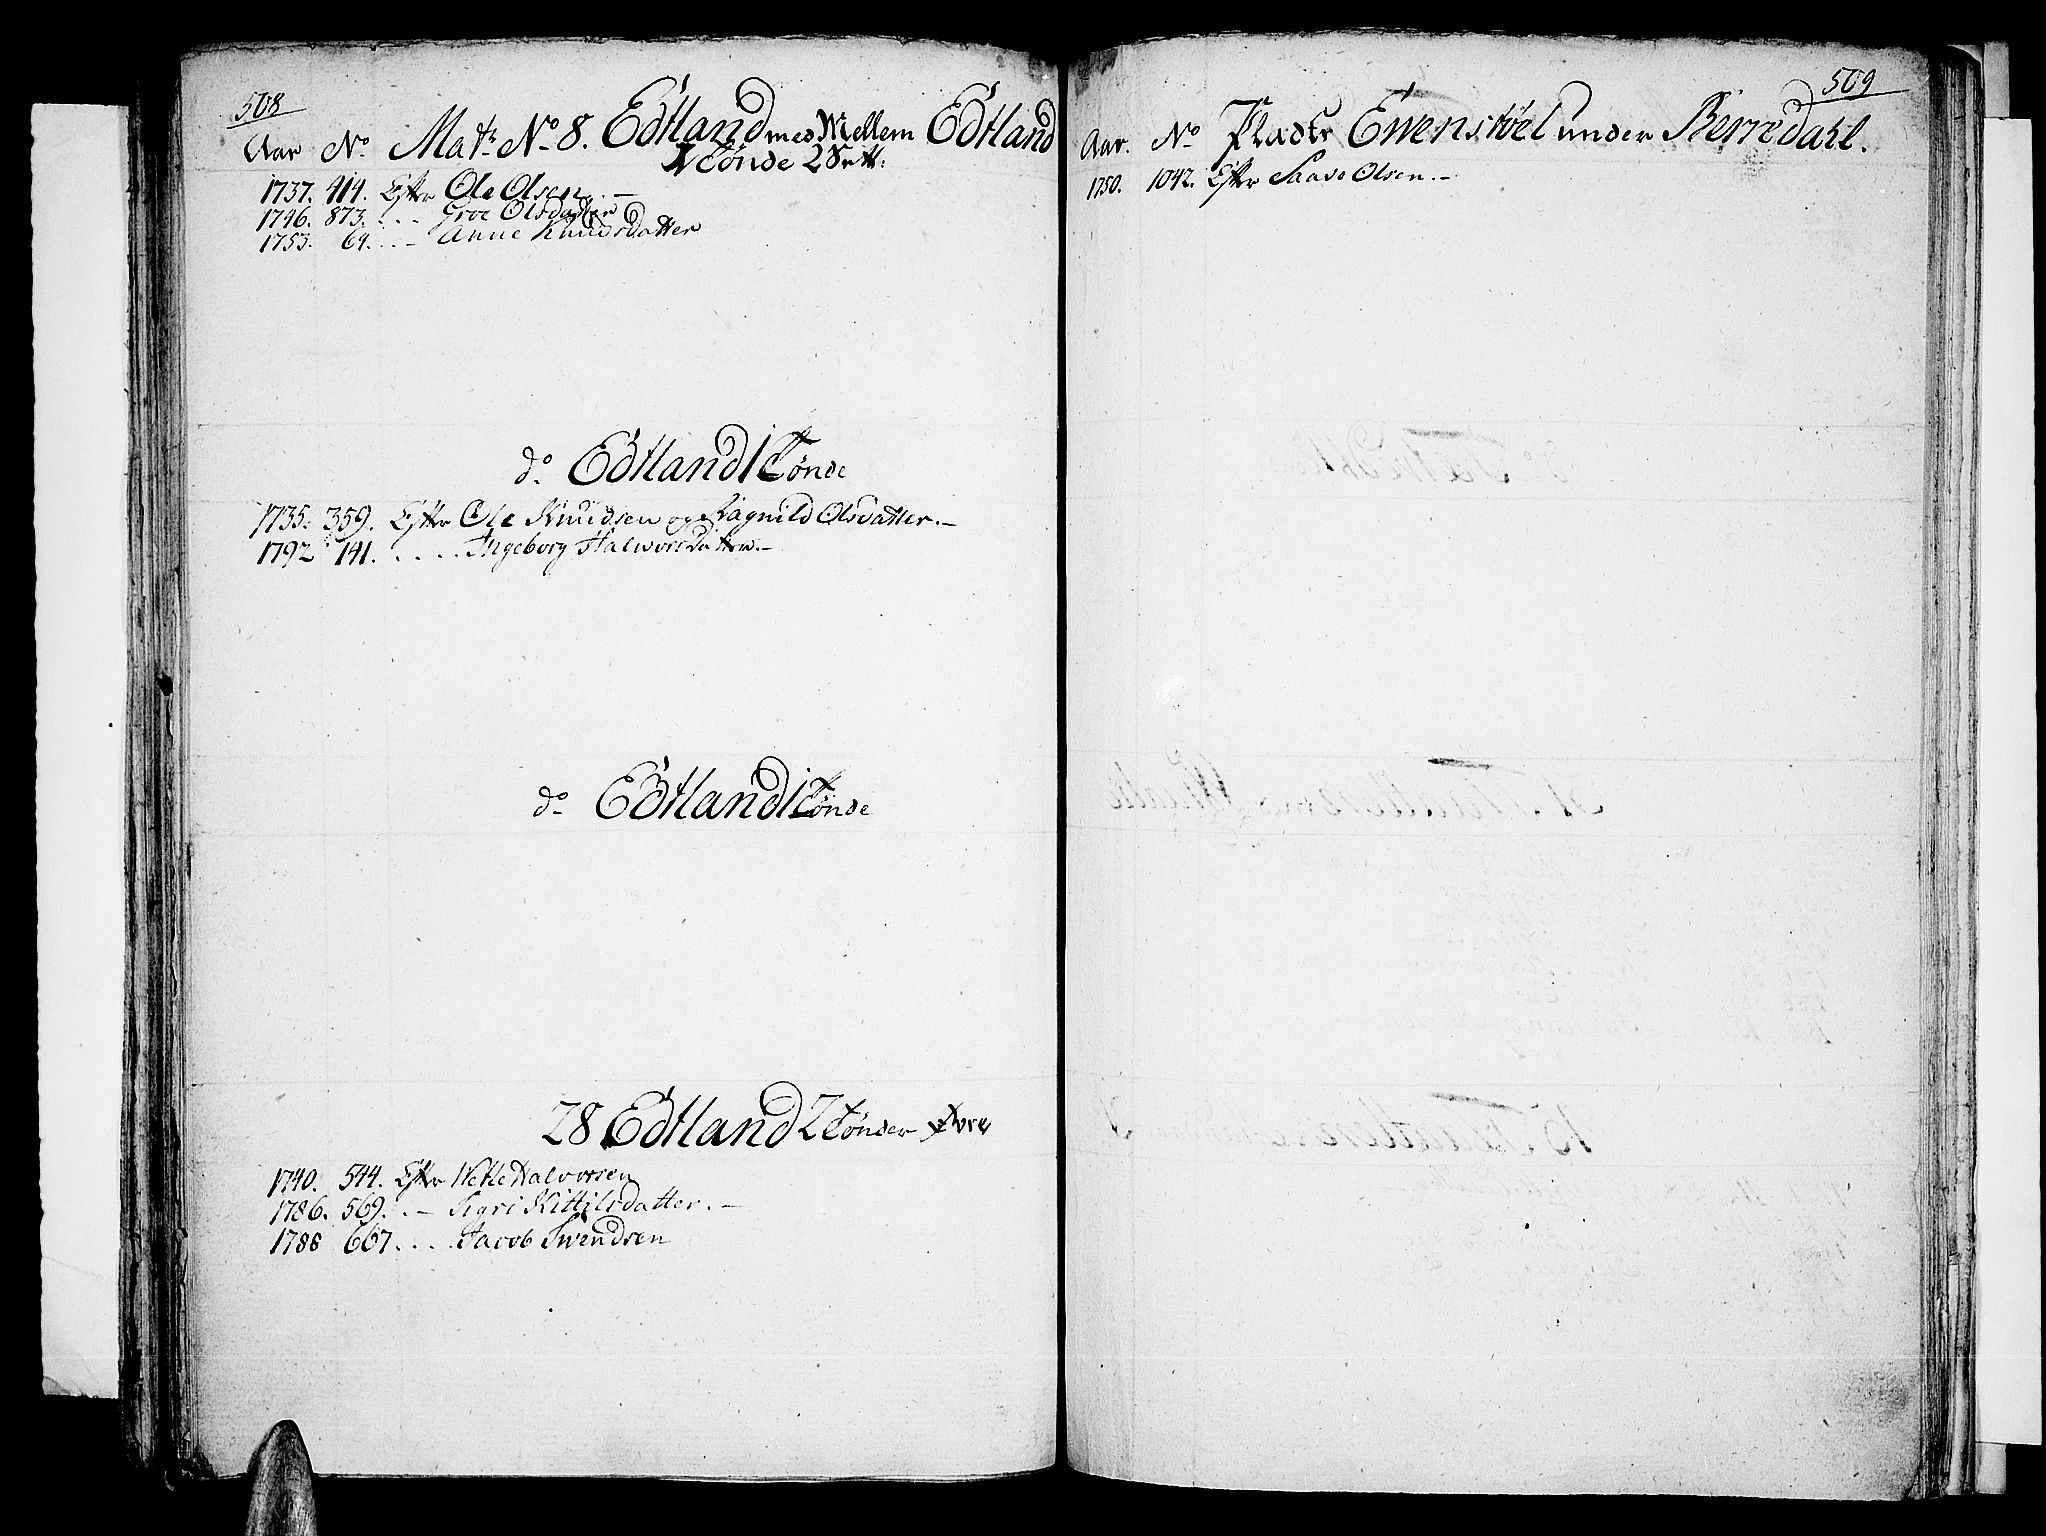 508
Aar No. Matr. No 8. Edtland med Mellem Edtland
1 Tönde 2 Sett:
1737. 414. Efter Ole Olsen. —
1746. 873. . . . Groe Olsdatter
1753. 64. . . — Anne Knudsdatter
do. Edtland 1 Tönde
1735. 359. Efter Ole Knudsen og Ragnild Olsdatter. —
1792 141. . . . . Ingeborg Halvorsdatter. —
do. Edtland 1 Tönde
28 Edtland 2 Tönder
1740. 544. Efter Wetle Halvorsen
1786. 569. . — Sigri Kittilsdatter. —
1788 667. . . . Jacob Swendsen
509
Aar. No Pladts Ewenstöel under Berredahl.
1750. 1042. Efter Saave Olsen. —